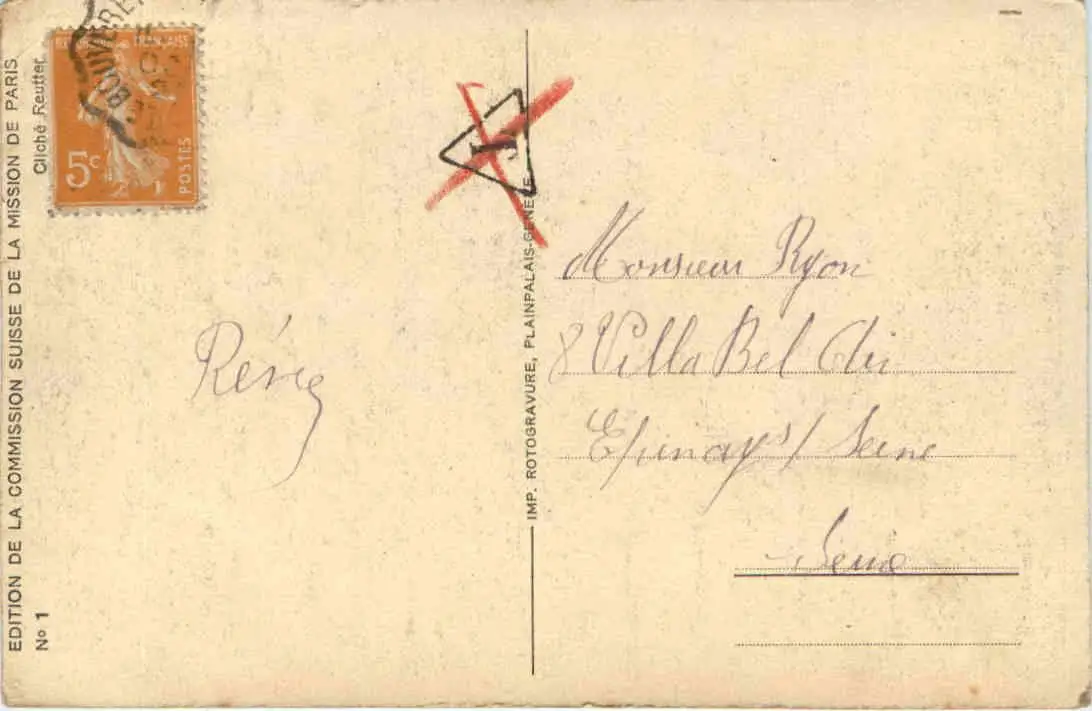 EDITION DE LA COMMISSION SUISSE DE LA MISSION DE PARIS
No 1
Cliché Reutter
FRANÇAISE
5c
POSTES
BOUVERE
T
IMP. ROTOGRAVURE, PLAINPALAIS-GENÈVE
Monsieur Ryon
8 Villa Bel Air
Epinay s/ Seine
Seine